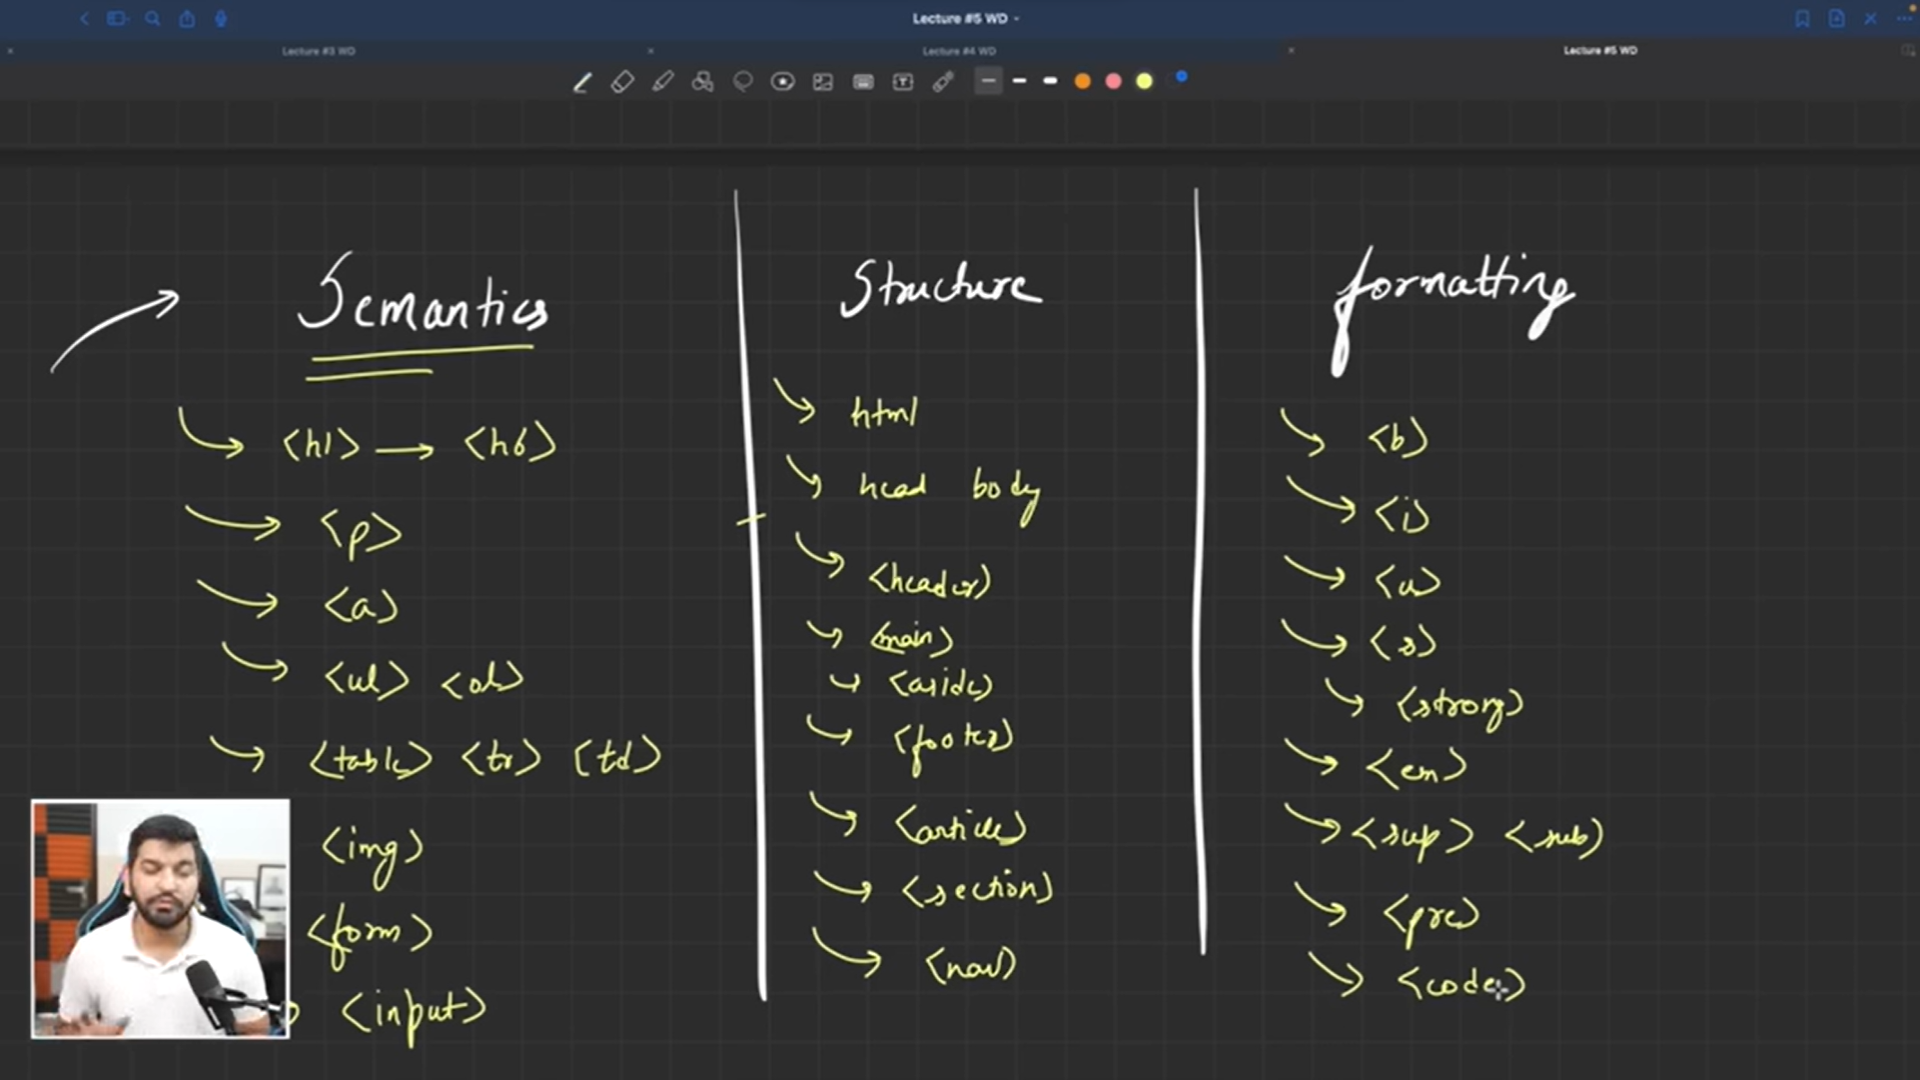 Lecture #5 WD
Lecture #3 WD
Lecture #4 WD
Lecture #5 WD
Semantics
<h1> → <h6>
<p>
<a>
<ul> <ol>
<table> <tr> <td>
<img>
<form>
<input>
Structure
html
head body
<header>
<main>
<aside>
<footer>
<article>
<section>
<nav>
formatting
<b>
<i>
<u>
<s>
<strong>
<em>
<sup> <sub>
<pre>
<code>